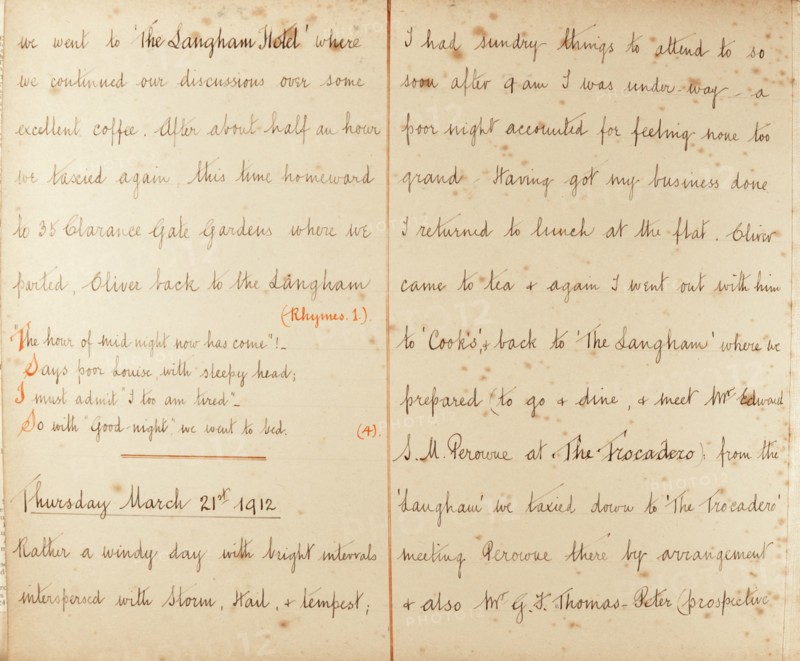 we went to 'The Langham Hotel' where
we continued our discussions over some
excellent coffee. After about half an hour
we taxied again, this time homeward
to 35 Clarance Gate Gardens where we
parted, Oliver back to the Langham
(Rhymes. 1.)
"The hour of mid-night now has come"!_
Says poor Louise, with sleepy head;
I must admit "I too am tired"_
So with "Good-night", we went to bed.
(A).
Thursday March 21st 1912
Rather a windy day with bright intervals
interspersed with Storm, Hail, & tempest;
I had sundry things to attend to so
soon after 9 am I was under-way - a
poor night accounted for feeling none too
grand - Having got my business done
I returned to lunch at the flat. Oliver
came to tea & again I went out with him
to 'Cook's', & back to 'The Langham' where we
prepared (to go & dine, & meet Mr Edward
S. M. Perowne at The Trocadero); from the
'Langham' we taxied down to 'The Trocadero'
meeting Perowne there by arrangement
& also Mr G. F. Thomas-Peter (prospective